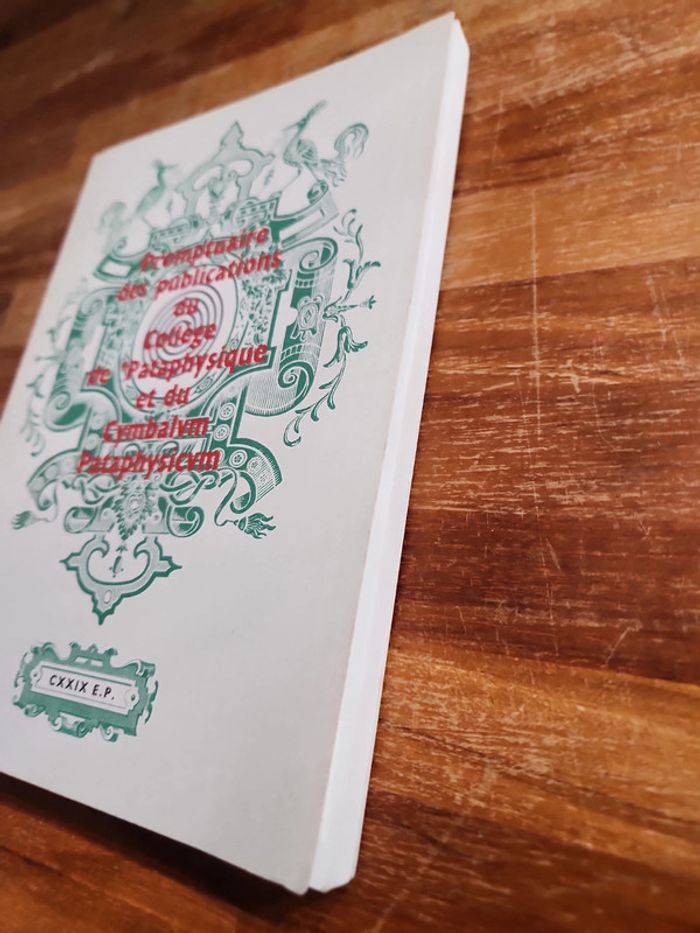 Promptuaire
des publications
du
Collège
de 'Pataphysique
et du
Cymbalvm
Pataphysicvm
CXXIX E.P.